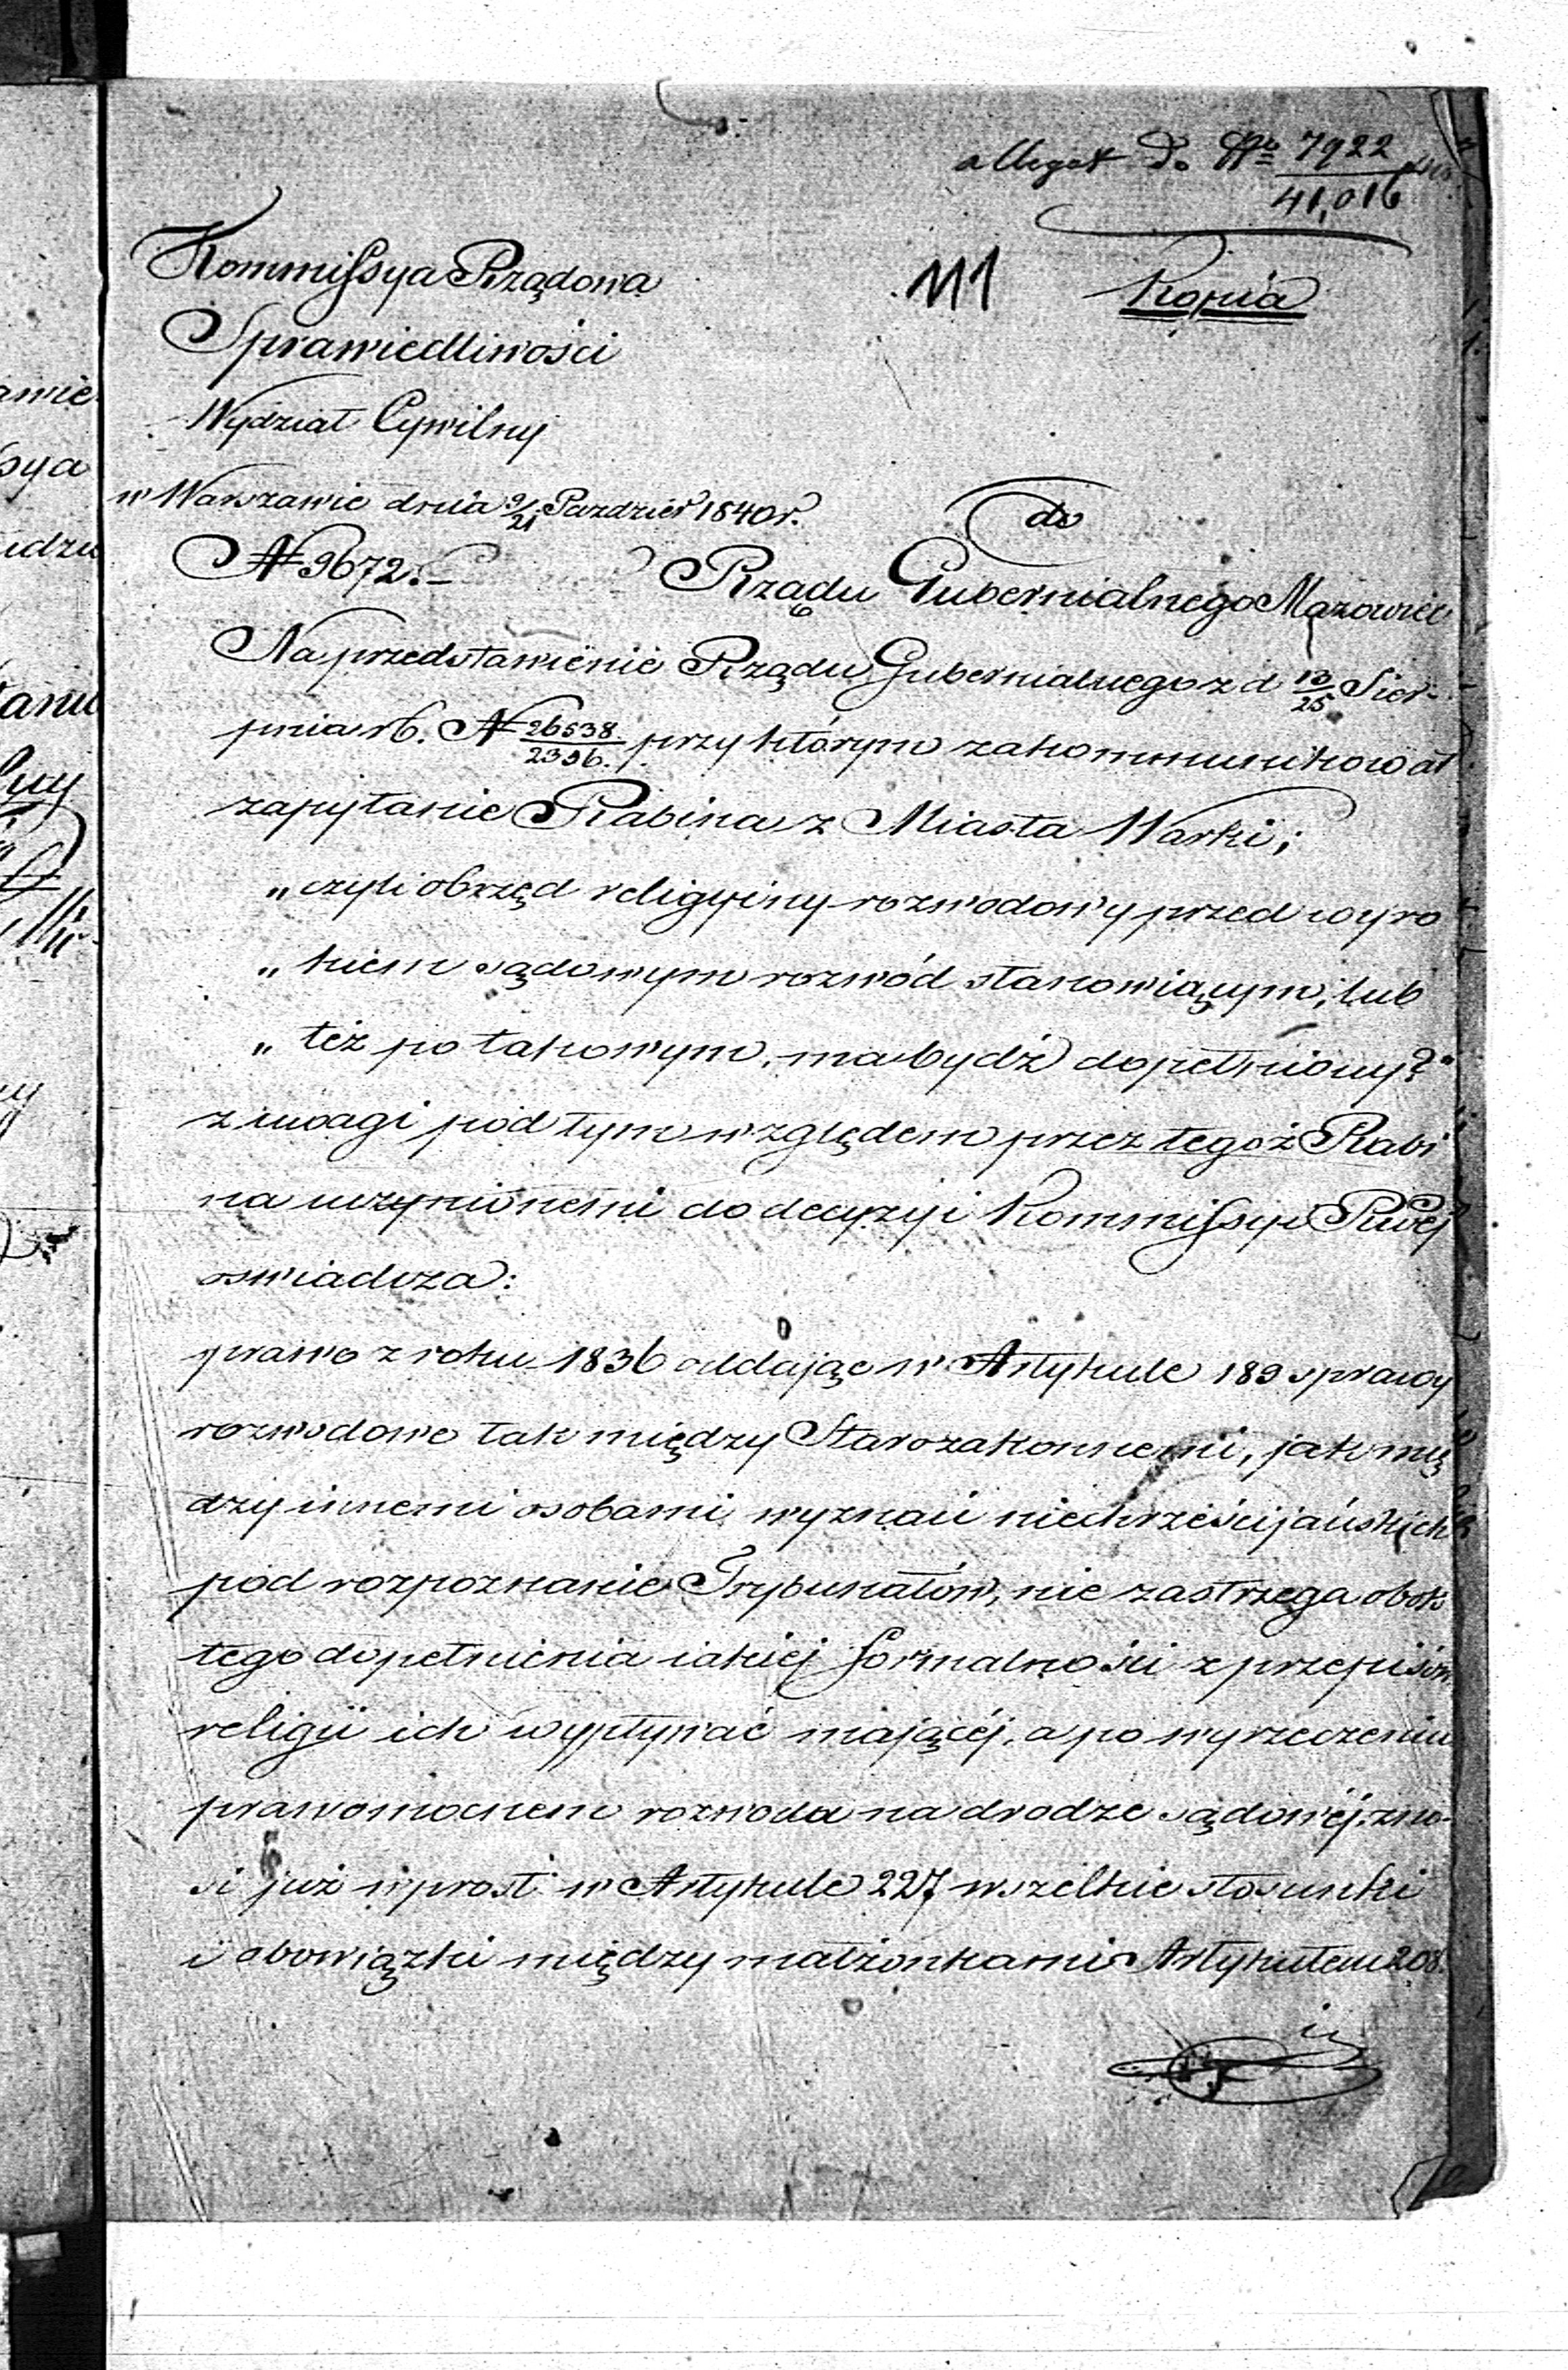 allegat do No 7922
41,016
Kommissya Rządowa
111 Kopia
Sprawiedliwości
Wydział Cywilny
w Warszawie dnia 9/21 Paździer 1840 r.
do
N 9672.-
Rządu Gubernialnego Mazowiec
Na przedstawienie Rządu Gubernialnego z d 13/25 Sier-
pnia rb. N 26538/2396. przy którym zakommunikował
zapytanie Rabina z Miasta Warki;
„czyli obrzęd religyiny rozwodowy przed wyro
„ kiem sądowym rozwód stanowiącym, lub
„ też po takowym, ma bydź dopełniony?"
z uwagi pod tym względem przez tegoż Rabi
na uczynionemi do decyzyi Kommissyi Rwéj
oswiadcza:
prawo z roku 1836 oddając w Artykule 189 sprawy
rozwodowe tak między Starozakonnemi, jak mię
dzy innemi osobami wyznań niechrześcijańskich
pod rozpoznanie Trybunałów, nie zastrzega obok
tego dopełnienia iakiej formalności z przepisów
religii ich wypływać mającéj, a po wyrzeczeniu
prawomocnem rozwodu na drodze sądowéj, zno-
si już wprost w Artykule 227 wszelkie stosunki
i obowiązki między małżonkami Artykułem 208.